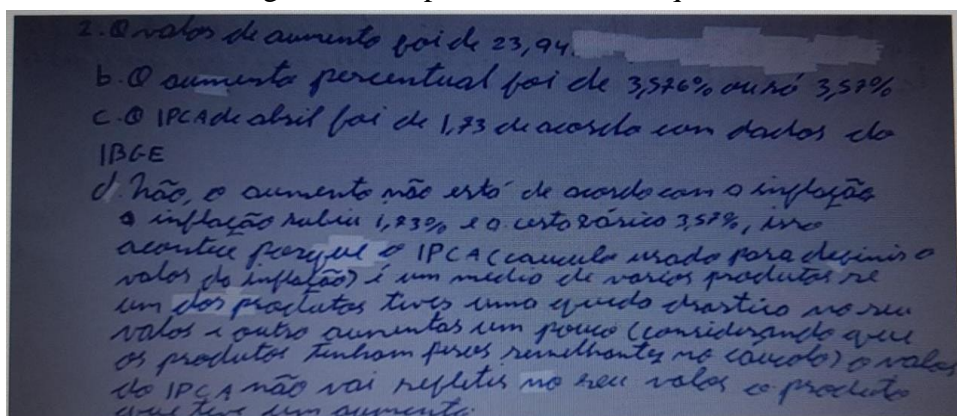 2. O valor de aumento foi de 23,94.
b. O aumento percentual foi de 3,576% ou só 3,57%
c. O IPCA de abril foi de 1,73 de acordo com dados do
IBGE
d. Não, o aumento não está de acordo com a inflação
a inflação subiu 1,73% e a cesta básica 3,57%, isso
acontece porque o IPCA (calculo usado para definir o
valor da inflação) é um media de varios produtos se
um dos produtos tiver uma queda drastica no seu
valor e outro aumentar um pouco (considerando que
os produtos tenham pesos semelhantes no calculo) o valor
do IPCA não vai refletir no seu valor o produto
que teve um aumento.